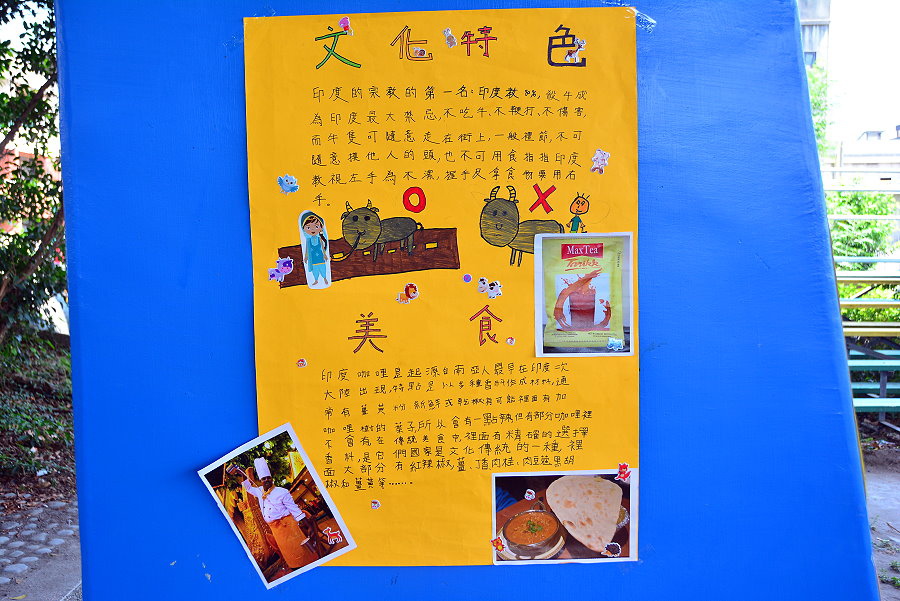 文化特色
印度的宗教的第一名:印度教80%,殺牛成
為印度最大禁忌,不吃牛、不鞭打、不傷害,
而牛隻可隨意走在街上,一般禮節,不可
隨意摸他人的頭,也不可用食指指印度
教視左手為不潔,握手及拿食物要用右
手。
O X
MaxTea
美食
印度咖哩是起源自南亞人最早在印度次
大陸出現,特點是以多種香料作成材料,通
常有薑黃粉新鮮或乾辣椒可能裡面有加
咖哩樹的葉子,所以會有一點辣但有部分咖哩裡
不會有在傳統美食中裡面有精確的選擇
香料,是它們國家是文化傳統的一種,裡
面大部分有紅辣椒、薑、丁香肉桂、肉豆蔻黑胡
椒和薑黃等……。